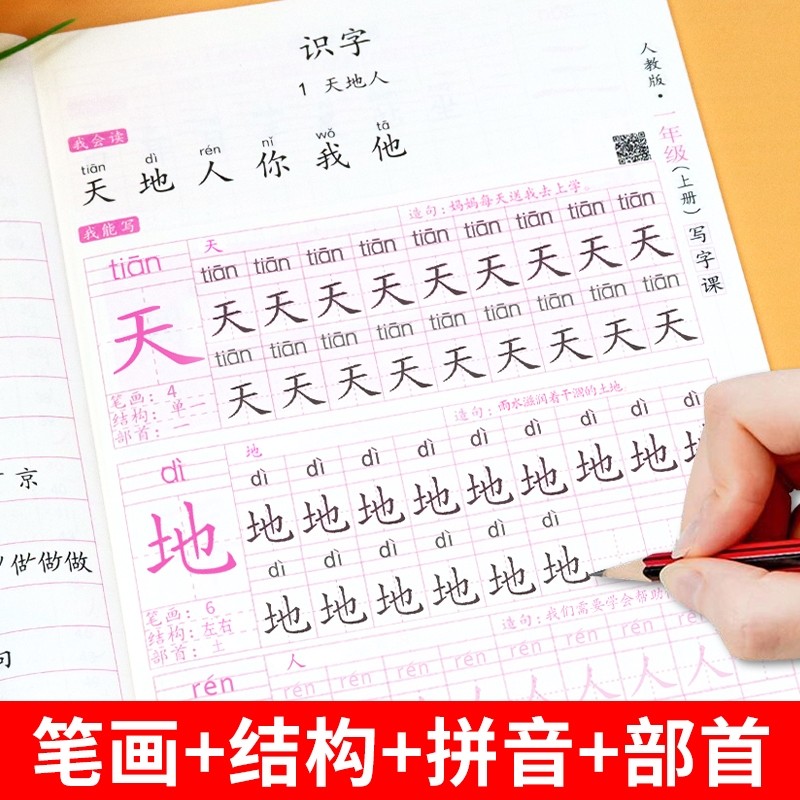 识字
1 天地人
我会读
tiān dì rén nǐ wǒ tā
天 地 人 你 我 他
人教版·一年级(上册)写字课
我能写
tiān
天
造句:妈妈每天送我去上学。
tiān tiān tiān tiān tiān tiān tiān tiān tiān
天
天 天 天 天 天 天 天 天 天
tiān tiān tiān tiān tiān tiān tiān tiān tiān
天 天 天 天 天 天 天 天 天
笔画:4
结构:单一
部首:一
dì
地
造句:雨水滋润着干涸的土地
dì dì dì dì dì dì dì dì dì
地
地 地 地 地 地 地 地 地 地
dì dì dì dì dì dì
地 地 地 地 地 地
笔画:6
结构:左右
部首:土
rén
人
造句:我们需要学会帮助
rén rén rén rén rén rén rén rén
人 人 人 人
京
做做做
句
笔画+结构+拼音+部首